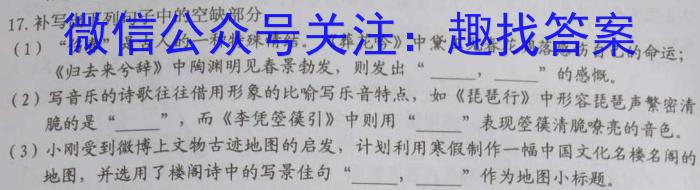 17.补写出下列句子中的空缺部分
微信公众号关注：趣找答案
(1)
的命运；
《归去来兮辞》中陶渊明见春景勃发，则发出“_____，_____”的感慨。
(2)写音乐的诗歌往往借用形象的比喻写乐音特点，如《琵琶行》中形容琵琶声繁密清
脆的是“_____”，而《李凭箜篌引》中则用“_____”表现箜篌清脆嘹亮的音色。
(3)小刚受到微博上文物古迹地图的启发，计划利用寒假制作一幅中国文化名楼名阁的
地图，并选用了楼阁诗中的写景佳句“_____，_____”作为地图小标题。